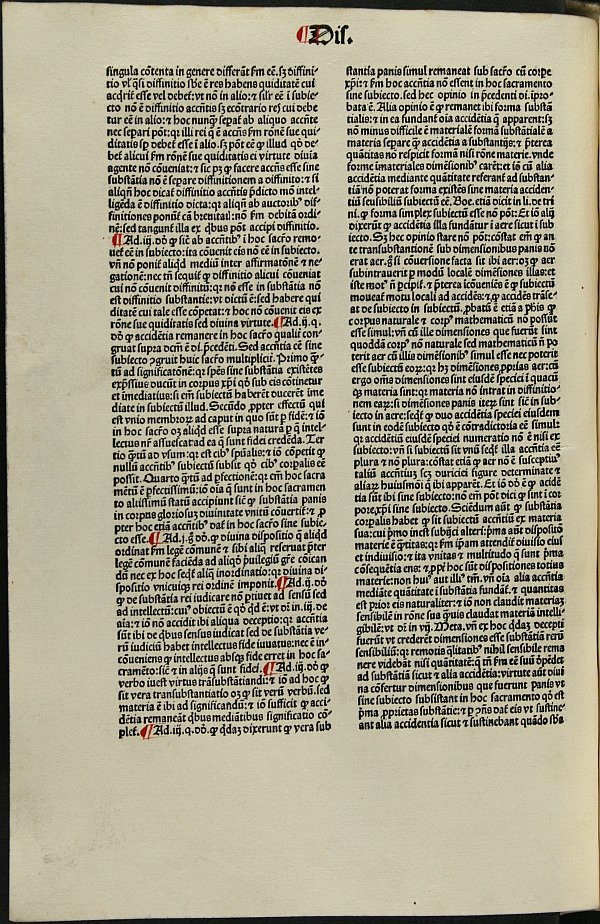 ¶ Dis.
singula cõtenta in genere differãt fm eẽ. sʒ diffini-
tio vl' q̃si diffinitio sbẽ ẽ res habens quiditatẽ cui
acq̃rit̃ esse vel debet̃: vt nõ in alio: ⁊ sil'r eẽ ĩ subie-
cto nõ ẽ diffinitio accñtis sʒ ecõtrario res cui debe
tur eẽ in alio: ⁊ hoc nunq̃ʒ sepat̃ ab aliquo accñte
nec separi põt: qꝛ illi rei q̃ ẽ accñs fm rõnẽ sue qui-
ditatis sp debet̃ esse ĩ alio. sʒ põt eẽ ꝙ illud qḋ de-
bet̃ alicui fm rõnẽ sue quiditatis ei virtute diuia
agente nõ cõueniat: ⁊ sic pʒ ꝙ facere accñs esse sine
substãtia nõ ẽ separe diffinitionem a diffinito: ⁊ si
aliqñ hoc dicat̃ diffinitio accñtis p̃dicto mõ intel-
ligẽda ẽ diffinitio dicta: qꝛ aliqñ ab auctorib' dif-
finitiones ponũt̃ cã breuitat̃: nõ fm debitã ordi-
nẽ: sed tangunt̃ illa ex q̇bus põt accipi diffinitio.
¶ Ad .iij. ḋõ ꝙ siẽ ab accñtib' ĩ hoc sacro remo-
uet̃ eẽ in subiecto: ita cõuenit eis nõ eẽ in subiecto.
vñ nõ ponit̃ aliqd mediũ inter affirmatõnẽ ⁊ ne-
gationẽ: nec tñ sequit̃ ꝙ diffinitio alicui cõueniat
cui nõ cõuenit diffinitũ: qꝛ nõ esse in substãtia nõ
est diffinitio substantie: vt dictũ ẽ: sed habere qui
ditatẽ cui tale esse cõpetat: ⁊ hoc nõ cõuenit eis ex
rõne sue quiditatis sed diuina virtute. ¶ Ad .ij. q.
ḋõ ꝙ accidẽtia remanere in hoc sacro qualit̃ con-
gruat supra dcm̃ ẽ di. p̃cedẽti. Sed accñtia eẽ sine
subiecto ꝯgruit huic sacro multiplicit̃. Primo q̃ʒ-
tũ ad significatõnẽ: qꝛ spẽs sine substãtia existẽtes
exp̃ssius ducũt in corpus xp̃i qḋ sub eis cõtinetur
et ĩmediatius: si em̃ subiectũ haberẽt ducerẽt ime
diate in subiectũ illud. Secũdo ꝓpter effectũ qui
est vnio membroꝝ ad caput in quo sũt p̃ fidẽ: ⁊ iõ
in hoc sacro oʒ aliqd esse supra naturã p̃ q̃ intel-
lectus nr̃ assuescat ad ea q̃ sunt fidei credẽda. Ter
tio q̃ʒtũ ad vsum: qꝛ est cib' sp̃ualis: ⁊ iõ cõperit ꝙ
nullũ accñtib' subiectũ subsit qḋ cib' corp̃alis eẽ
possit. Quarto q̃ʒtũ ad p̃fectionẽ: qꝛ em̃ hoc sacra
mẽtũ ẽ p̃fectissimũ: iõ oĩa q̃ sunt in hoc sacramen
to altissimũ statũ accipiunt siẽ ꝙ substãtia panis
in corpus gloriosuʒ diuinitate vnitũ cõuertit̃: ⁊ ꝓ
pter hoc etiã accñtib' dat̃ in hoc sacro sine subie-
cto esse. ¶ Ad .j. g̃ ḋõ. ꝙ diuina dispositio q̃ aliqd
ordinat fm legẽ cõmunẽ ⁊ sibi aliq̃ reseruat p̃ter
legẽ cõmunẽ faciẽda ad aliqḋ p̃uilegiũ gr̃e cõican
dũ nec ex hoc seqt̃ aliq̃ inordinatio: qꝛ diuina di-
spositio vnicuiqʒ rei ordinẽ imponit. ¶ Ad .ij. ḋõ
ꝙ de substãtia rei iudicare nõ p̃tinet ad sensũ sed
ad intellectũ: cui' obiectũ ẽ qḋ qḋ ẽ: vt dr̃ in .iij. de
aĩa: ⁊ iõ nõ accidit ibi aliqua deceptio: qꝛ accñtia
sũt ibi de q̇bus sensus iudicat sed de substãtia ve-
rũ iudiciũ habet intellectus fide iuuatus: nec ẽ in-
cõueniens ꝙ intellectus absqʒ fide erret in hoc sa-
cramẽto: siẽ ⁊ in alijs q̃ sunt fidei. ¶ Ad .iij. ḋõ ꝙ
verbo inest virtus trãsubstãtiandi: ⁊ iõ ad hoc ꝙ
sit vera transubstantiatio oʒ ꝙ sit verũ verbũ. sed
materia ẽ ibi ad significandũ: ⁊ iõ sufficit ꝙ acci-
dẽtia remaneãt q̇bus mediãtibus significatio cõ-
plet̃. ¶ Ad .iij. q. ḋõ. ꝙ q̇daʒ dixerunt ꝙ vera sub
stantia panis simul remaneat sub sacro cũ corpe
xp̃i: ⁊ fm hoc accñtia nõ essent in hoc sacramento
sine subiecto. sed hec opinio in p̃cedenti di. ip̃ro-
bata ẽ. Alia opinio ẽ ꝙ remanet ibi forma substã
tialis: ⁊ in ea fundant̃ oĩa accidẽtia q̃ apparent: sʒ
nõ minus difficile ẽ materialẽ formã substãtialẽ a
materia separe q̃ʒ accidẽtia a substantijs: ⁊ p̃terea
quãtitas nõ respicit formã nisi rõne materie. vnde
forme imateriales dimẽsionib' carẽt: et iõ cũ alia
accidẽtia mediante quãtitate referant̃ ad substan-
tiã nõ poterat forma existẽs sine materia acciden-
tiũ sensibiliũ subiectũ eẽ. Boe. etiã dicit in li. de tri
ni. ꝙ forma simplex subiectũ esse nõ põt: Et iõ alij
dixerũt ꝙ accidẽtia illa fundãtur ĩ aere sicut ĩ sub
iecto. Sʒ hec opinio stare nõ põt: cõstat em̃ ꝙ an
te transubstantionẽ sub dimensionibus panis nõ
erat aer. g̃ si cõuersione facta sit ibi aer: oʒ ꝙ aer
subintrauerit p̃ modũ localẽ dimẽsiones illas: et
iste mot' ñ p̃cipit̃: ⁊ p̃terea icõueniẽs ẽ ꝙ subiectũ
moueat̃ motu locali ad accidẽs: ⁊ ꝙ accidẽs trãse-
at de subiecto in subiectũ. p̃batũ ẽ etiã a ph̃is ꝙ
corpus naturale ⁊ corp' mathematicũ nõ possũt
esse simul: vñ cũ ille dimensiones que fuerũt sint
quoddã corp' nõ naturale sed mathematicũ ñ po
terit aer cũ illis dimẽsionib' simul esse nec poterit
esse subiectũ eoꝝ: qꝛ hʒ dimẽsiones ꝓprias aer: cũ
ergo om̃s dimensiones sint eiusdẽ speciei ĩ quãtũ
q̃ʒ materia sint: qꝛ materia nõ intrat in diffinitio-
nem eaꝝ: si dimẽsiones panis iteꝝ sint siẽ in sub-
iecto in aere: seqt̃ ꝙ duo accidẽtia speciei eiusdem
sunt in eodẽ subiecto qḋ ẽ cõtradictoria eẽ simul:
qꝛ accidẽtiũ eiusdẽ speciei numeratio nõ ẽ nisi ex
subiecto: vñ si subiectũ sit vnũ seqt̃ illa accñtia eẽ
plura ⁊ nõ plura: cõstat etiã ꝙ aer nõ ẽ susceptiu'
taliũ accñtiuʒ sʒ duriciei figure determinate ⁊
aliaꝝ huiusmõi q̃ ibi apparẽt. Et iõ ḋõ ẽ ꝙ accidẽ
tia sũt ibi sine subiecto: nõ em̃ põt dici ꝙ sint ĩ cor
pore xp̃i sine subiecto. Sciẽdum aũt ꝙ substãtia
corp̃alis habet ꝙ sit subiectũ accñtiũ ex materia
sua: cui p̃mo inest subijci alteri: p̃ma aũt dispositõ
materie ẽ q̃ntitas: qꝛ fm ip̃am attendit̃ diuisio eius
et indiuisio: ⁊ ita vnitas ⁊ multitudo q̃ sunt p̃ma
cõsequẽtia ens: ⁊ ꝓp̃t̃ hoc sũt dispositiones totius
materie: non hui' aut illi' tm̃. vñ oĩa alia accñtia
mediãte quãtitate ĩ substãtia fundãt̃. ⁊ quantitas
est prior eis naturaliter: ⁊ iõ non claudit materiaʒ
sensibilẽ in rõne sua q̃ʒuis claudat materia intelli-
gibilẽ: vt dr̃ in .vij. Meta. vñ ex hoc q̇daʒ decepti
fuerũt vt crederẽt dimensiones esse substãtiã rerũ
sensibiliũ: qꝛ remotis q̃litatib' nihil sensibile rema
nere videbãt nisi quãtitatẽ: q̃ tñ fm eẽ suũ dep̃det̃
ad substãtiã sicut ⁊ alia accidẽtia: virtute aũt diui
na cõfertur dimensionibus que fuerunt panis vt
sine subiecto subsistant in hoc sacramento qḋ est
p̃ma ꝓprietas substãtie: ⁊ p̃ ꝯñs dat̃ eis vt sustine-
ant alia accidentia sicut ⁊ sustinebant quãdo sbã